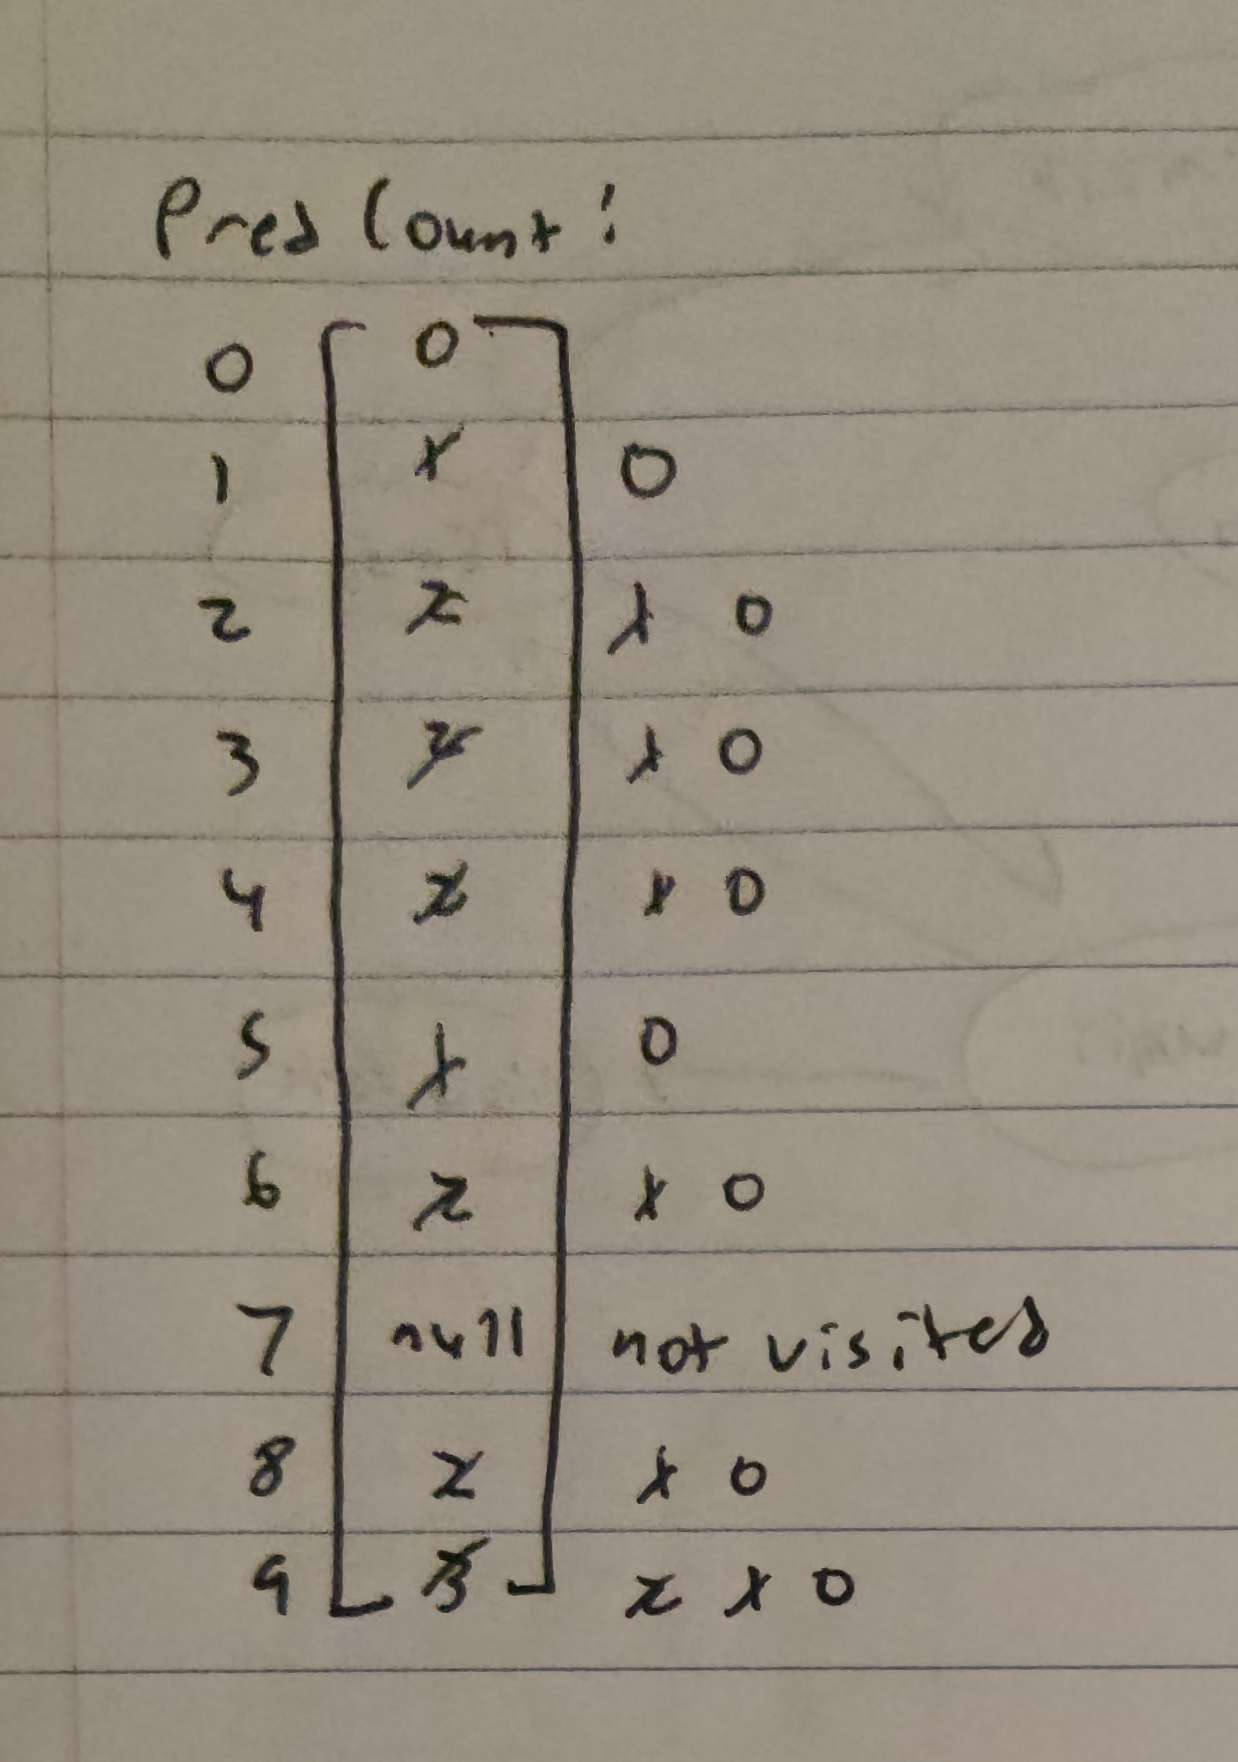 Pred Count:
0 0
1 1 0
2 2 1 0
3 2 1 0
4 2 1 0
5 1 0
6 2 1 0
7 null not visited
8 2 1 0
9 3 2 1 0